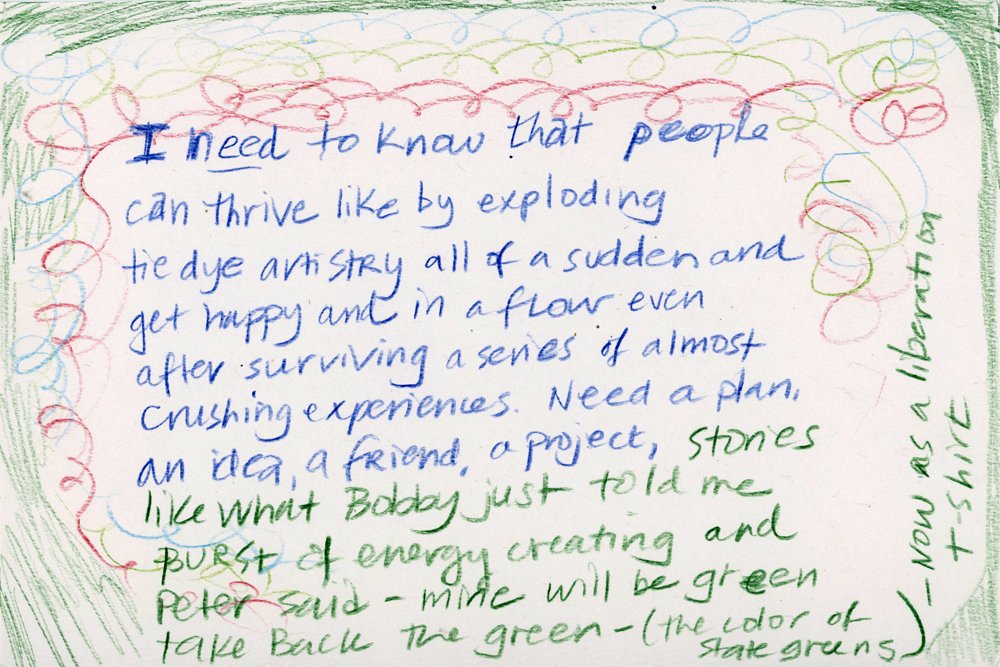 I need to know that people
can thrive like by exploding
tie dye artistry all of a sudden and
get happy and in a flow even
after surviving a series of almost
crushing experiences. Need a plan,
an idea, a friend, a project, stories
like what Bobby just told me
BURSt of energy creating and
Peter said - mine will be green
take Back the green - (the color of
state greens)
- now as a liberation
t-shirt